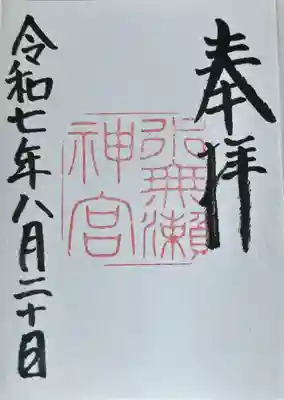 奉拝
水無瀬
神宮
令和七年八月二十日